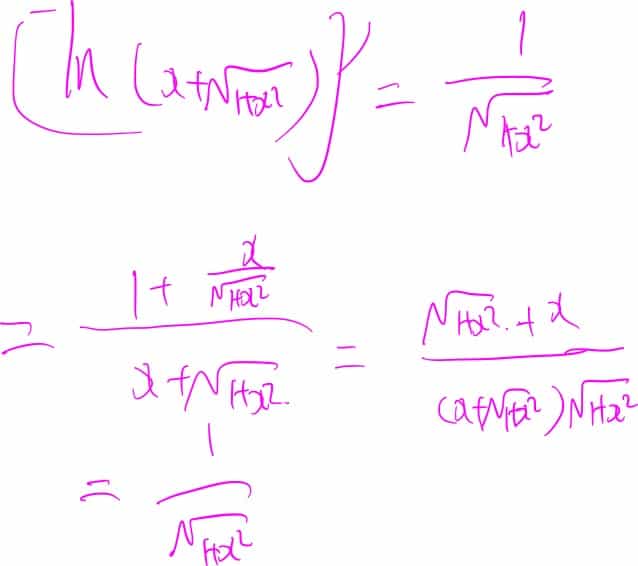 [ln (x+√(1+x²))]' = 1/√(1+x²)
= (1 + x/√(1+x²))/(x+√(1+x²)) = (√(1+x²) + x)/((x+√(1+x²))√(1+x²))
= 1/√(1+x²)